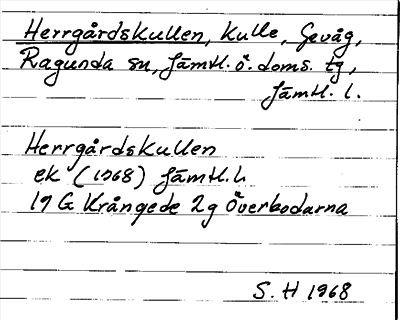 Herrgårdskullen, kulle, Gevåg,
Ragunda sn, Jämtl. ö. doms. tg,
Jämtl. l.
Herrgårdskullen
ek (1968) Jämtl. l.
19 G Krångede 2g Överbodarna
S. H 1968